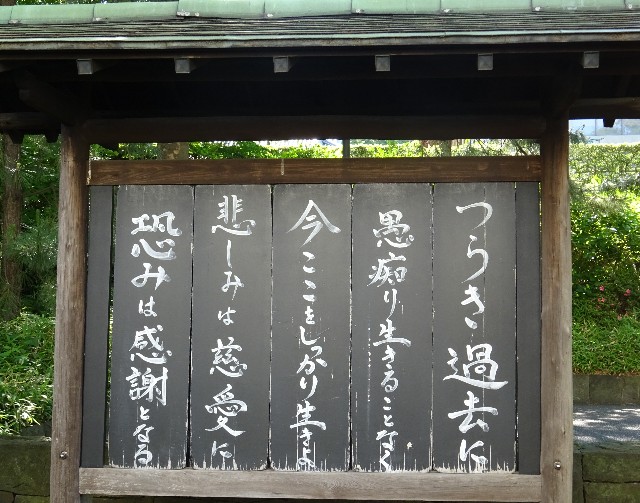 つらき過去に
愚痴り生きることなく
今ここをしっかり生きよ
悲しみは慈愛に
恐みは感謝となる